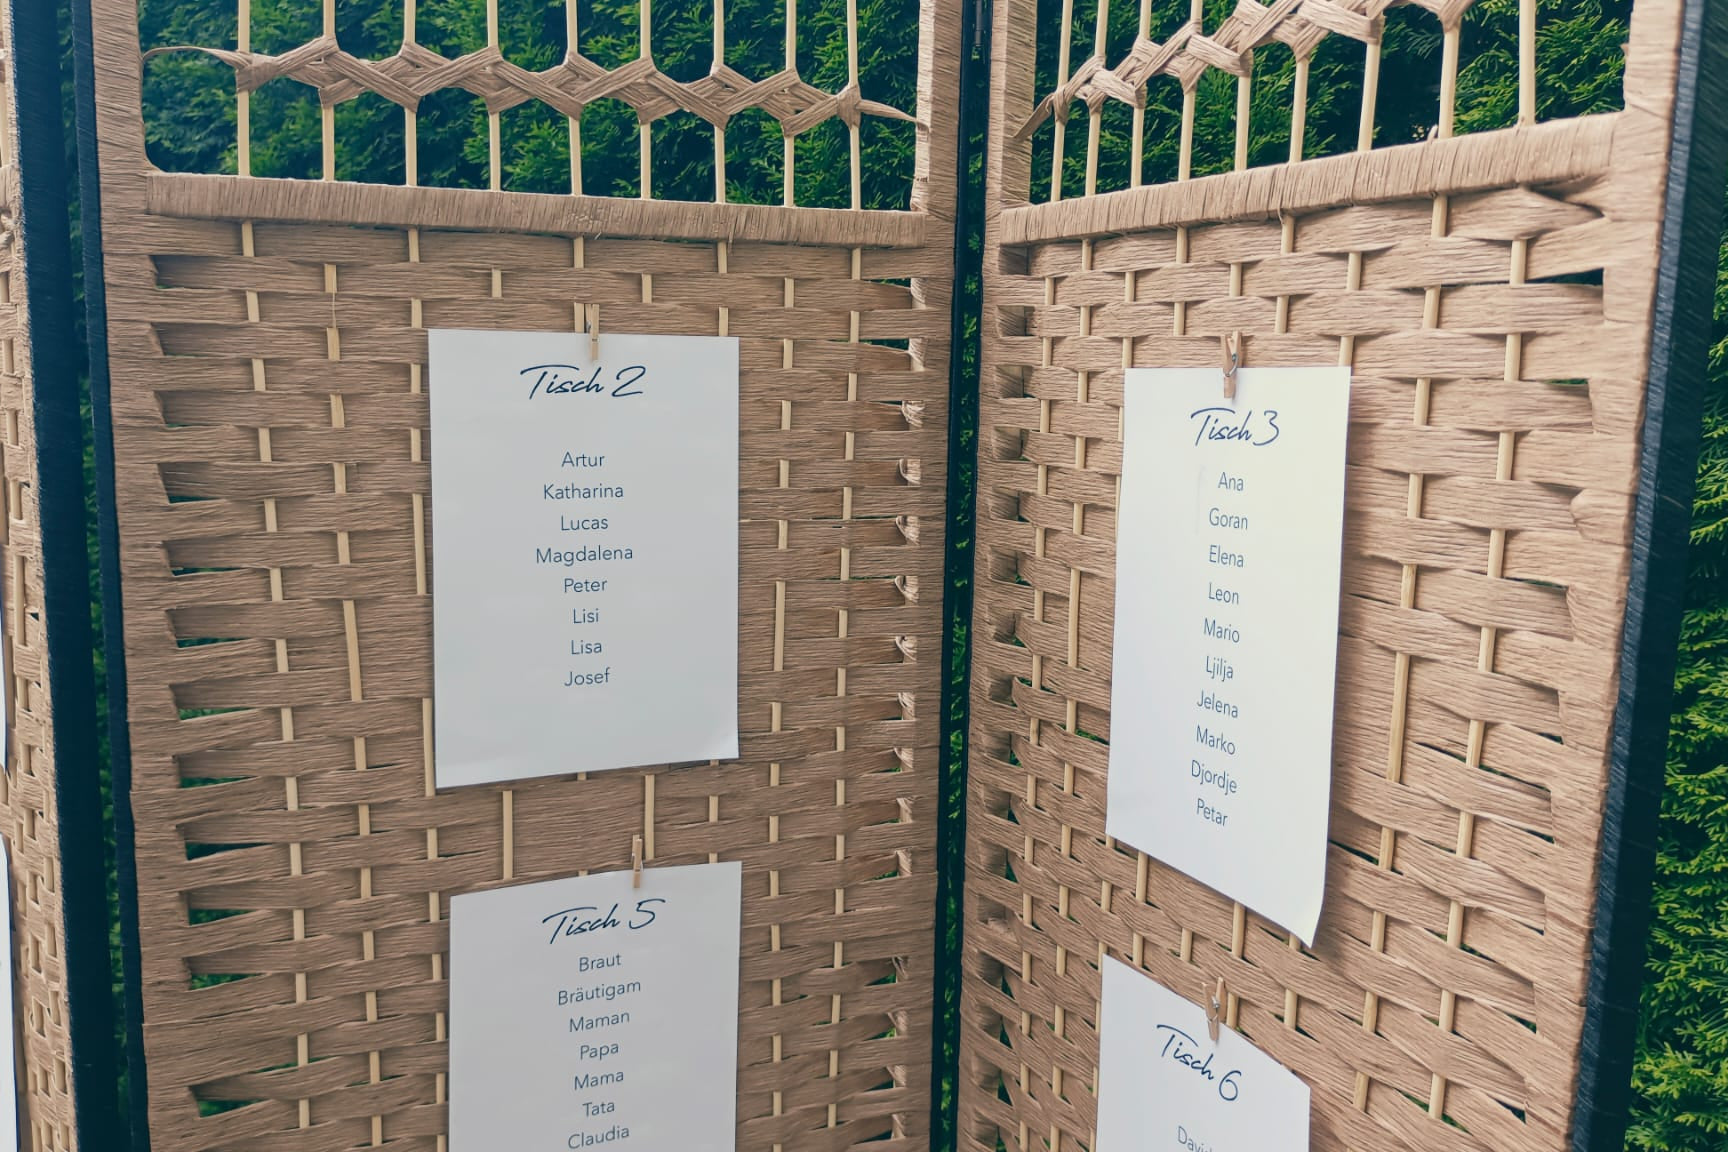 Tisch 2
Artur
Katharina
Lucas
Magdalena
Peter
Lisi
Lisa
Josef
Tisch 3
Ana
Goran
Elena
Leon
Mario
Ljilja
Jelena
Marko
Djordje
Petar
Tisch 5
Braut
Bräutigam
Maman
Papa
Mama
Tata
Claudia
Tisch 6